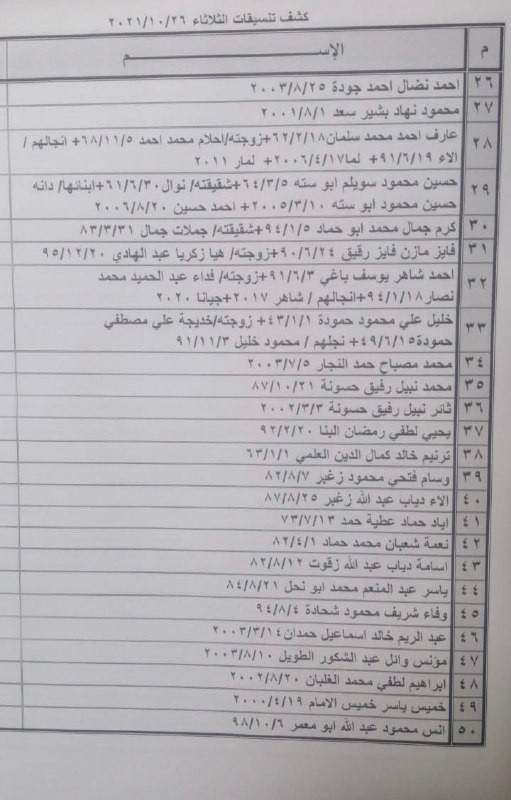 كشف تنسيقات الثلاثاء ٢٠٢١/١٠/٢٦
م الإســـــم
٢٦ احمد نضال احمد جودة ٢٠٠٣/٨/٢٥
٢٧ محمود نهاد بشير سعد ٢٠٠١/٨/١
٢٨ عارف احمد محمد سلمان٦٢/٢/١٨+زوجته/احلام محمد احمد ٦٨/١١/٥+ انجالهم /
الاء ٩١/٦/١٩+ لما٢٠٠٦/٤/١٧+ لمار ٢٠١١
٢٩ حسين محمود سويلم ابو سته ٦٤/٣/٥+شقيقته/ نوال٦١/٦/٣٠+ابنائها/ دانه
حسين محمود ابو سته ٢٠٠٥/٣/١٠+ احمد حسين ٢٠٠٦/٨/٢٠
٣٠ كرم جمال محمد ابو حماد ٩٤/١/٥+شقيقته/ جملات جمال ٨٣/٣/٣١
٣١ فايز مازن فايز رقيق ٩٠/٦/٢٤+زوجته/ هيا زكريا عبد الهادي ٩٥/١٢/٢٠
٣٢ احمد شاهر يوسف باغي ٩١/٦/٣+زوجته/ فداء عبد الحميد محمد
نصار٩٤/١/١٨+انجالهم / شاهر ٢٠١٧+جيانا ٢٠٢٠
٣٣ خليل علي محمود حمودة ٤٣/١/١+ زوجته/خديجة علي مصطفي
حمودة٤٩/٦/١٥+ نجلهم / محمود خليل ٩١/١١/٣
٣٤ محمد مصباح حمد النجار ٢٠٠٣/٧/٥
٣٥ محمد نبيل رفيق حسونة ٨٧/١٠/٢١
٣٦ ثائر نبيل رفيق حسونة ٢٠٠٢/٣/٣
٣٧ يحيي لطفي رمضان البنا ٩٢/٢/٢٠
٣٨ ترنيم خالد كمال الدين العلمي ٦٣/١/١
٣٩ وسام فتحي محمود زغبر ٨٢/٨/٧
٤٠ الاء دياب عبد الله زغبر ٨٧/٨/٢٥
٤١ اياد حماد عطية حمد ٧٣/٧/١٣
٤٢ نعمة شعبان محمد حماد ٨٢/٤/١
٤٣ اسامة دياب عبد الله زقوت ٨٢/٨/١٢
٤٤ ياسر عبد المنعم محمد ابو نحل ٨٤/٨/٢١
٤٥ وفاء شريف محمود شحادة ٩٤/٨/٤
٤٦ عبد الريم خالد اسماعيل حمدان٢٠٠٣/٣/١٤
٤٧ مؤنس وائل عبد الشكور الطويل ٢٠٠٣/٨/١٠
٤٨ ابراهيم لطفي محمد الغلبان ٢٠٠٢/٨/٢٠
٤٩ خميس ياسر خميس الامام ٢٠٠٠/٤/١٩
٥٠ انس محمود عبد الله ابو معمر ٩٨/١٠/٦